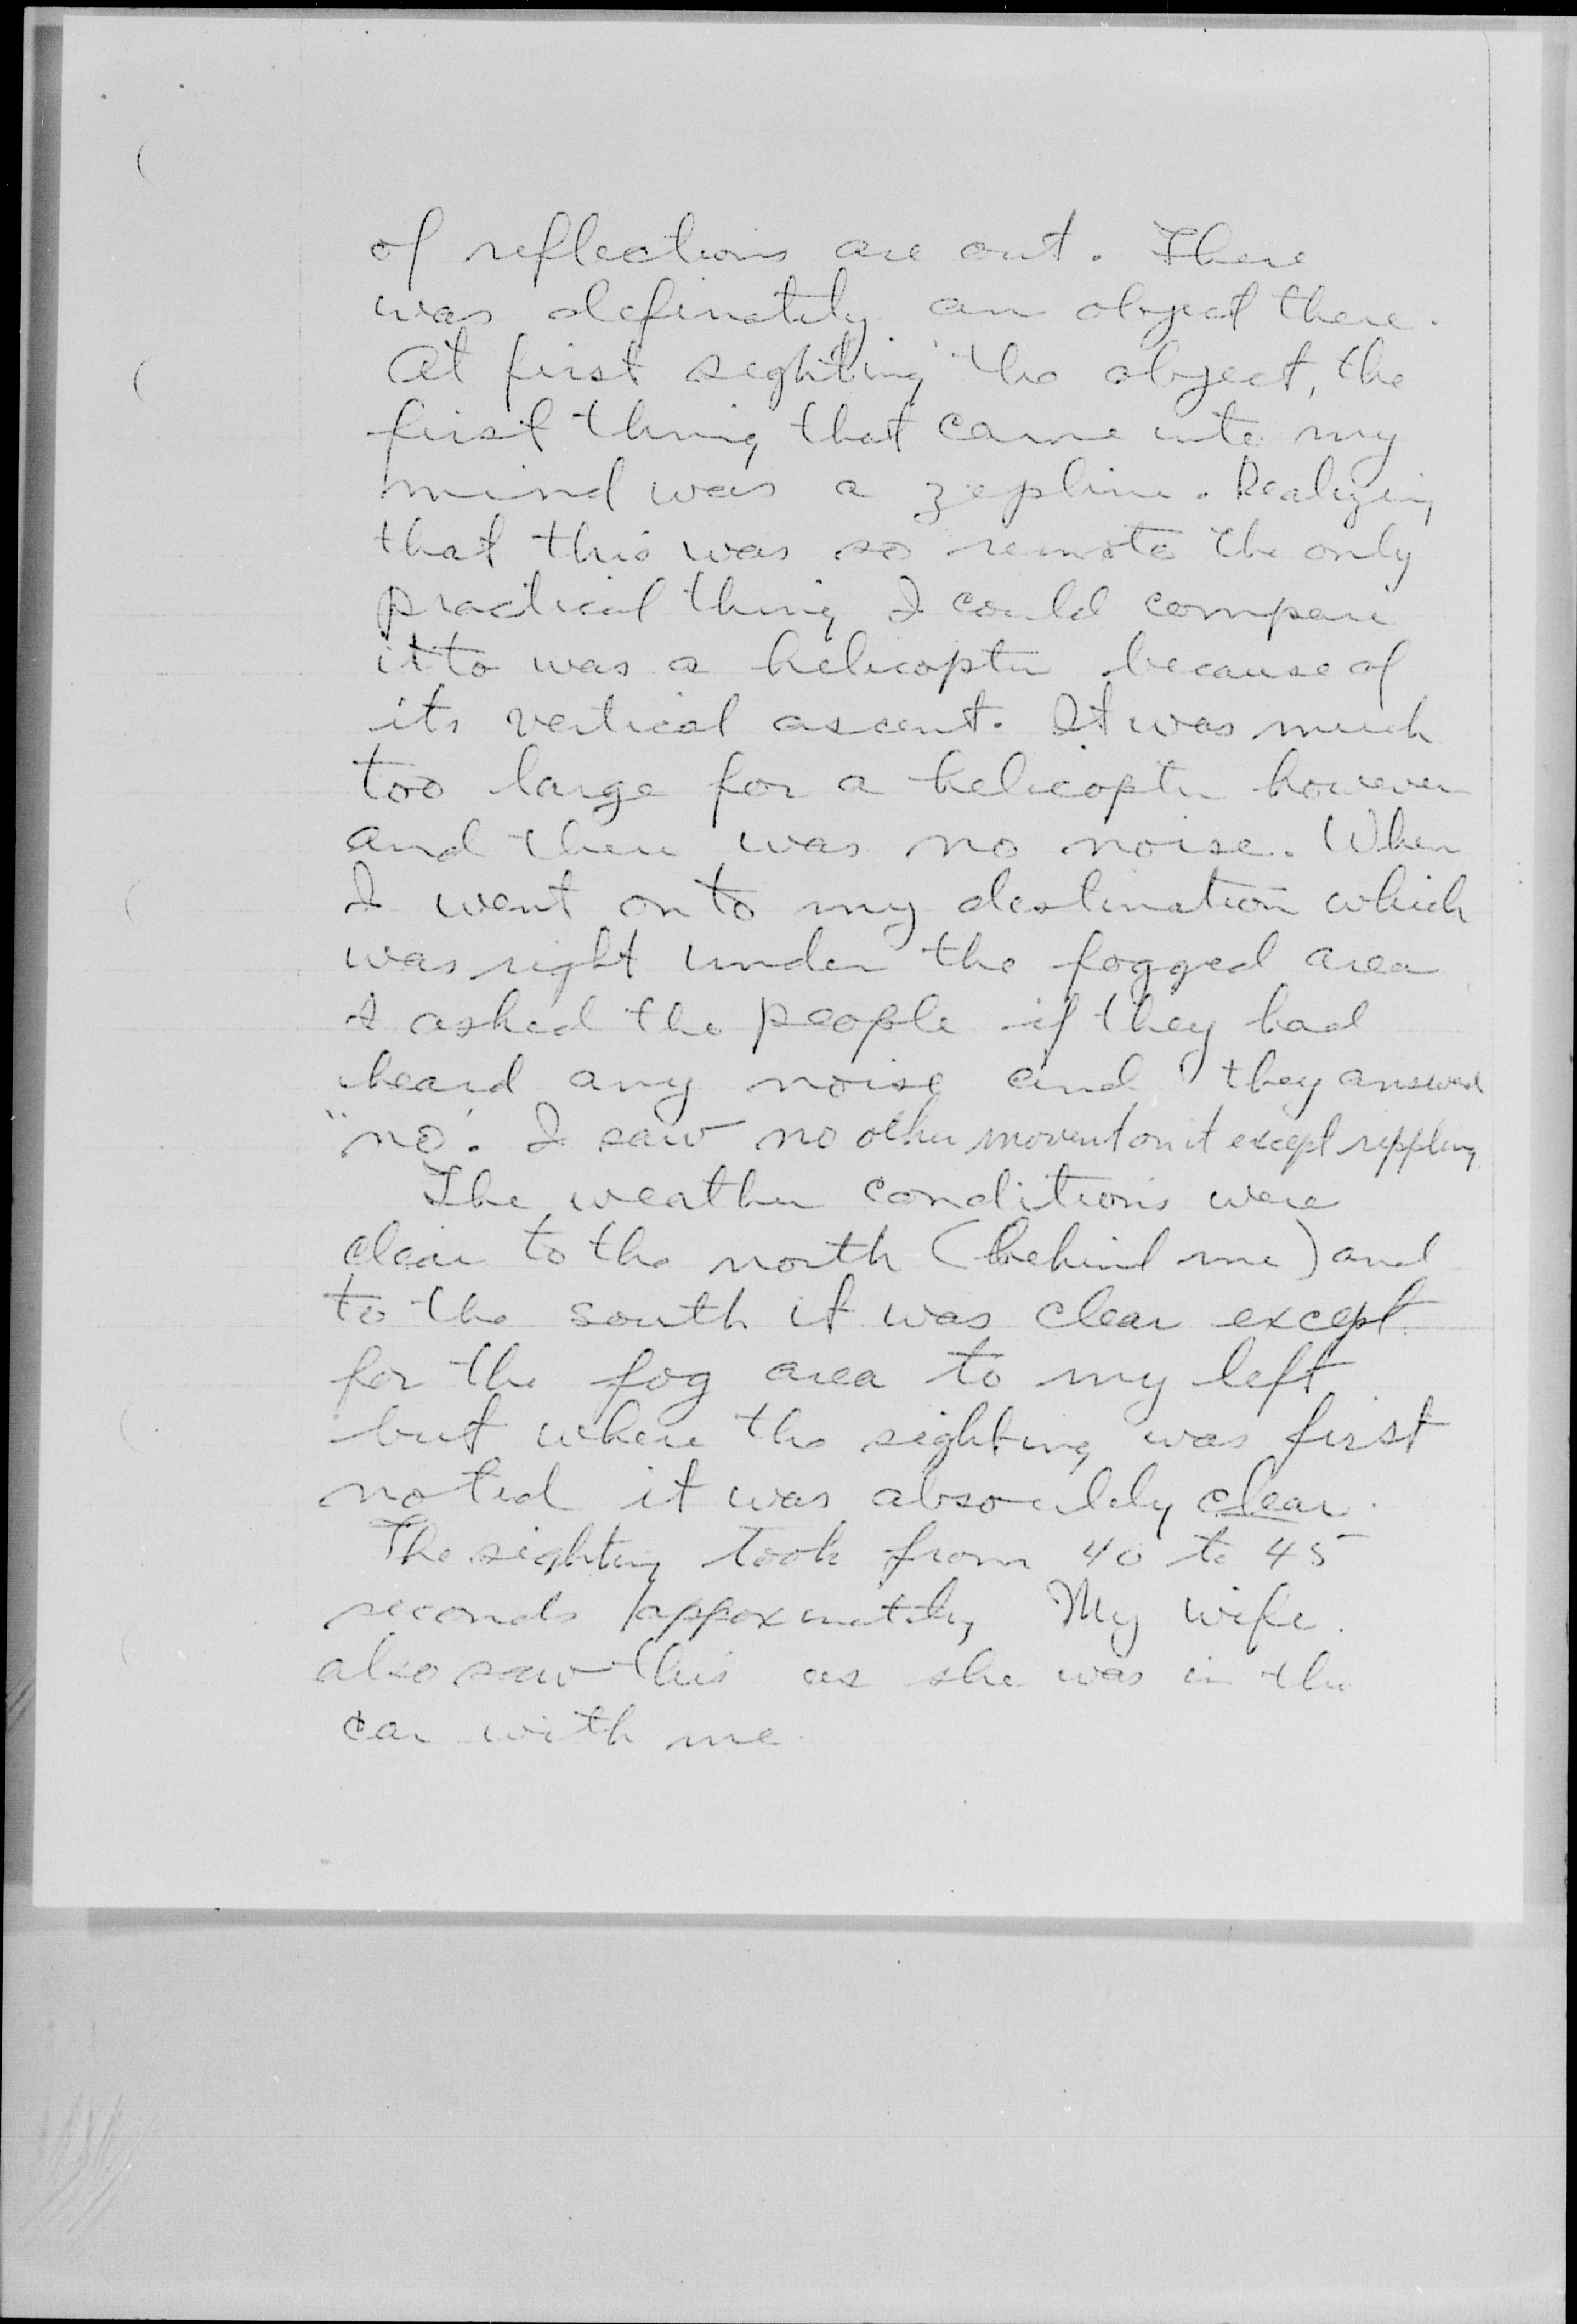 of reflections are out. There
was definately an object there.
At first sighting the object, the
first thing that came into my
mind was a zepline. Realizing
that this was so remote the only
practical thing I could compare
it to was a helicopter because of
its vertical ascent. It was much
too large for a helicopter however
and there was no noise. When
I went on to my destination which
was right under the fogged area
I asked the people if they had
heard any noise and they answered
"no". I saw no other movent on it except rippling.
The weather conditions were
clear to the north (behind me) and
to the south it was clear except
for the fog area to my left
but where the sighting was first
noted it was absoulely clear.
The sighting took from 40 to 45
seconds appoxmately My wife.
also saw this as she was in the
car with me.